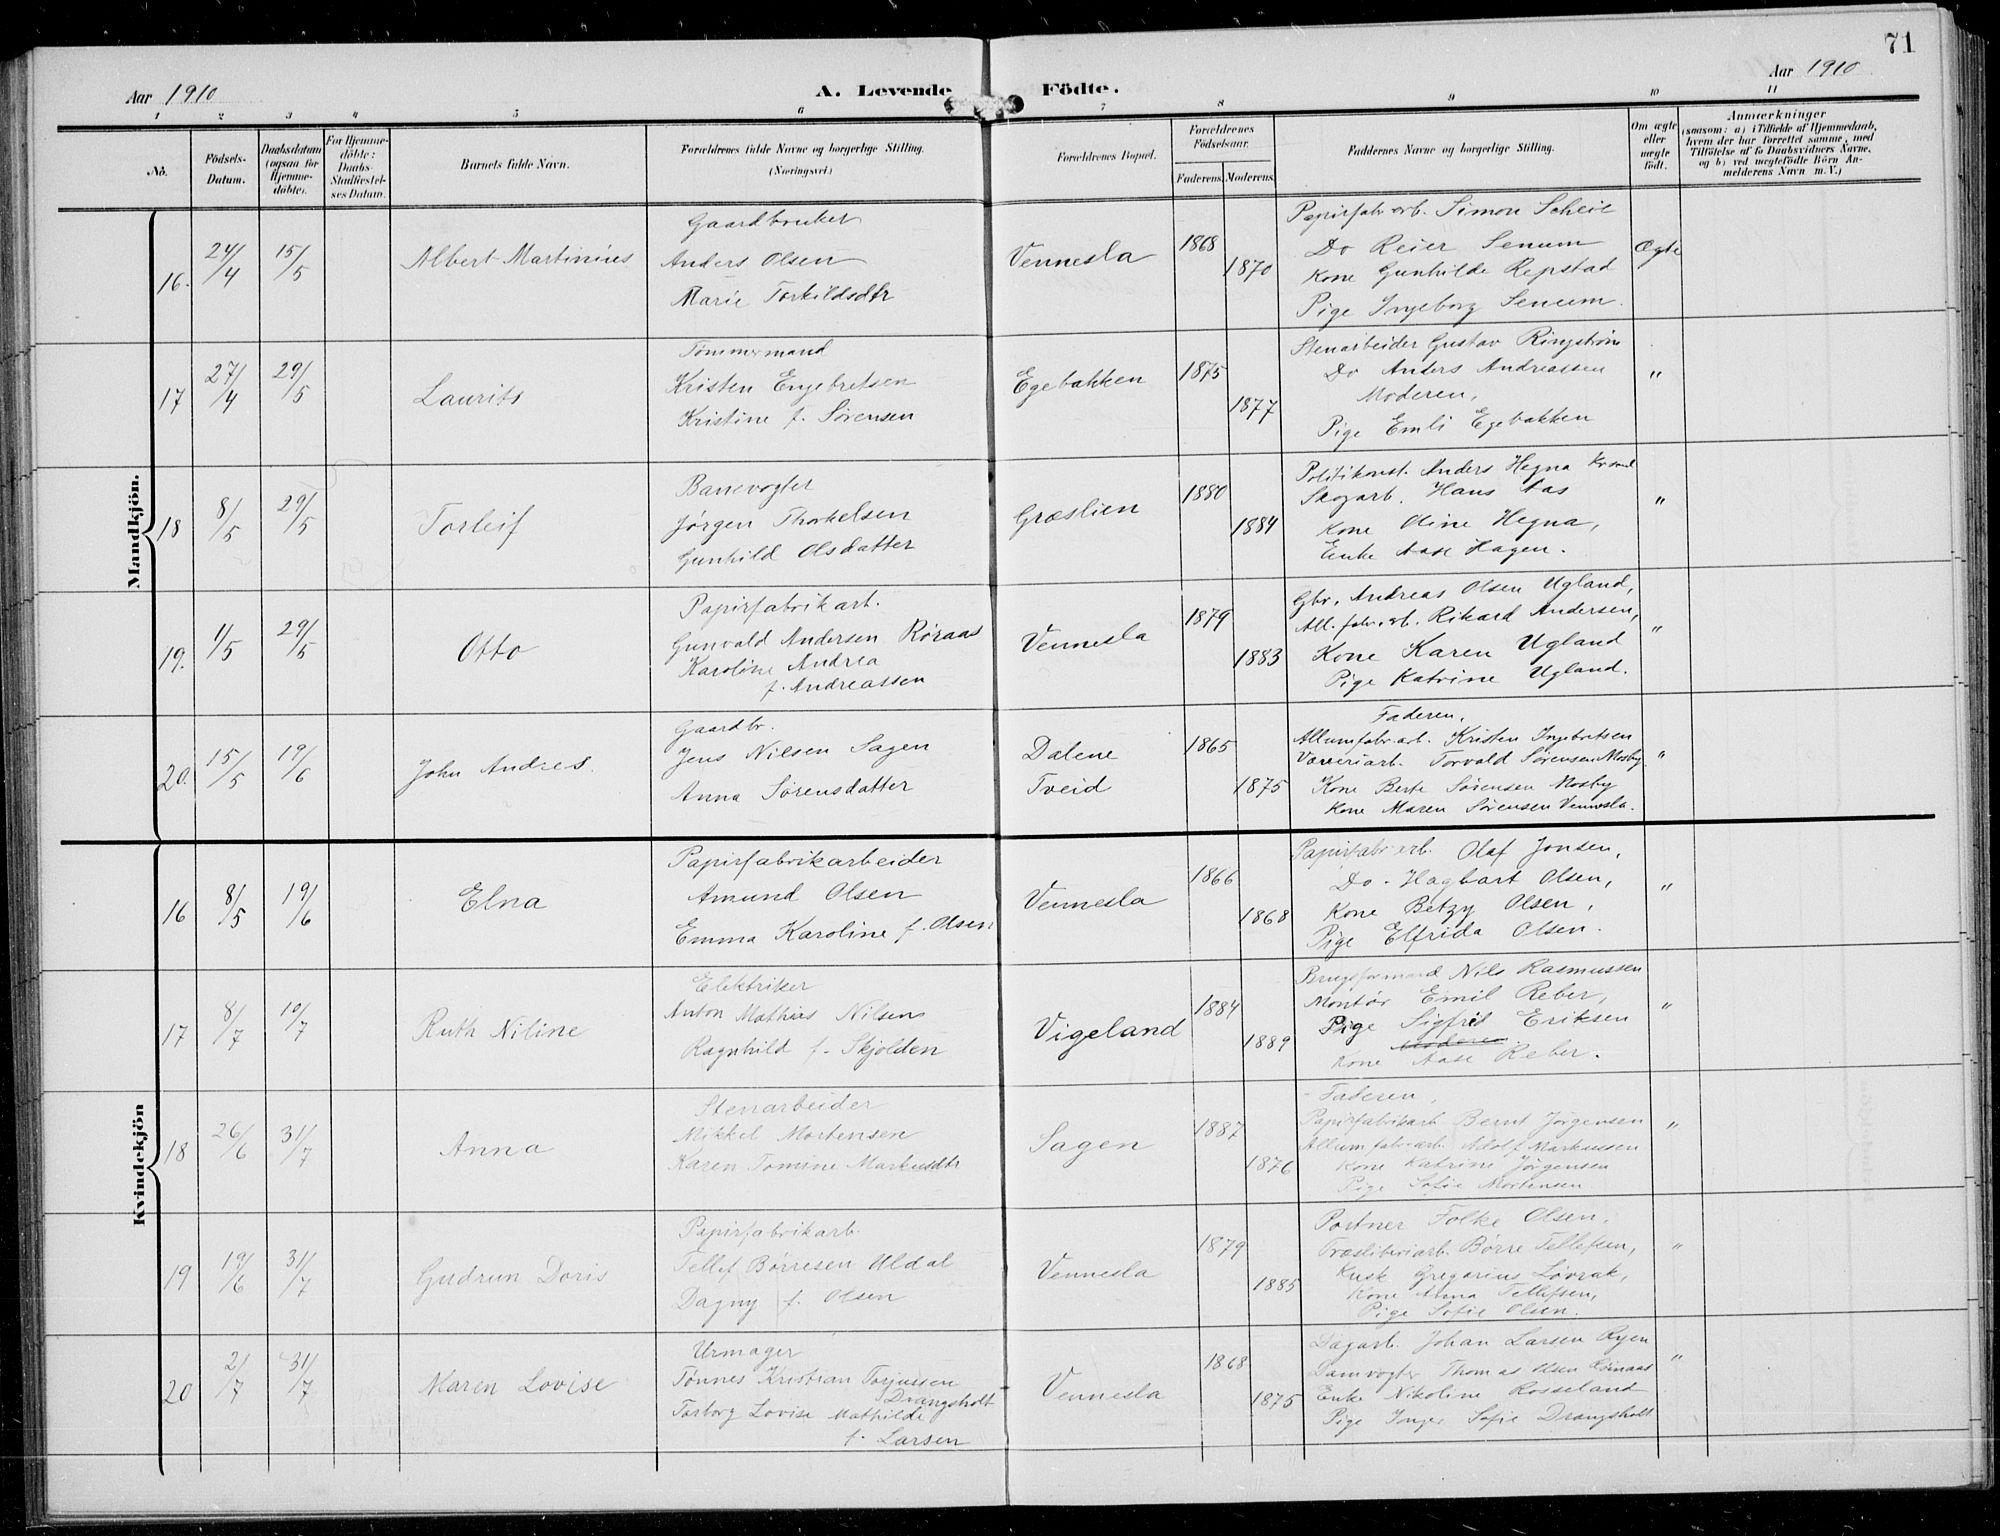 71
Aar 1910
A. Levende Födte.
Aar 1910
1 2 3 4 5 6 7 8 9 10 11
No.
Födsels-
Datum.
Daabsdatum
(ogsaa for
Hjemme-
döbte).
For Hjemme-
döbte:
Daabs-
Stadfæstel-
ses Datum.
Barnets fulde Navn.
Forældrenes fulde Navne og borgerlige Stilling.
(Næringsvei.)
Forældrenes Bopæl.
Forældrenes
Födselsaar.
Faderens. Moderens.
Faddernes Navne og borgerlige Stilling.
Om ægte
eller
uægte
födt.
Anmærkninger
(saasom: a) i Tilfælde af Hjemmedaab,
hvem der har forrettet samme, med
Tilföielse af to Daabsvidners Navne,
og b) ved uægtefödte Börn An-
melderens Navn m. V.)
Mandkjön.
16. 24/4 15/5 Albert Martinius
Gaardbruker
Anders Olsen
Marie Torkildsdtr
Vennesla 1868 1870
Papirfabr.arb. Simon Scheie
Do Reier Senum
Kone Gunhilde Repstad
Pige Ingeborg Senum.
Ægte
17 27/4 29/5 Laurits
Tømmermand
Kristen Engebretsen
Kristine f. Sørensen
Egebakken 1875 1877
Stenarbeider Gustav Ringstrøm
Do Anders Andreassen
Moderen,
Pige Emli Egebakken
"
18 8/5 29/5 Torleif
Banevogter
Jørgen Thorkelsen
Gunhild Olsdatter
Græslien 1880 1884
Politikonst. Anders Hegna Kr.sand
Skogarb. Hans Aas
Kone Oline Hegna,
Enke Aase Hagen.
"
19. 1/5 29/5 Otto
Papirfabrikarb.
Gunvald Andersen Røraas
Karoline Andrea
f. Andreassen
Vennesla 1879 1883
Gbr. Andreas Olsen Ugland,
All.fabr.arb. Rikard Andersen,
Kone Karen Ugland
Pige Katrine Ugland.
"
20. 15/5 19/6 John Andres.
Gaardbr.
Jens Nilsen Sagen
Anna Sørensdatter
Dalene
Tveid
1865 1875
Faderen,
Allumfabr.arb. Kristen Ingebretsen
Væveriarb. Torvald Sørensen Mosby
Kone Berte Sørensen Mosby
Kone Maren Sørensen Vennesla.
"
Kvindekjön
16 8/5 19/6 Elna
Papirfabrikarbeider
Amund Olsen
Emma Karoline f. Olsen
Vennesla 1866 1868
Papirfabr.arb. Olaf Jonsen,
Do - Hagbart Olsen,
Kone Betzy Olsen,
Pige Elfrida Olsen.
"
17 8/7 10/7 Ruth Niline
Elektriker
Anton Mathias Nilsen
Ragnhild f. Skjolden
Vigeland 1884 1889
Brugsformand Nils Rasmussen
Montør Emil Reber,
Pige Sigfrid Eriksen
Moderen
Kone Aase Reber.
"
18 26/6 31/7 Anna
Stenarbeider
Mikkel Mortensen
Karen Tomine Markusdtr
Sagen 1887 1876
Faderen,
Papirfabrikarb Bernt Jørgensen
Allumfabr.arb. Adolf Markussen
Kone Katrine Jørgensen
Pige Sofie Mortensen.
"
19 19/6 31/7 Gudrun Doris
Papirfabrikarb.
Tellef Børresen Uldal
Dagny f. Olsen
Vennesla 1879 1885
Portner Folke Olsen,
Træsliberiarb. Børre Tellefsen,
Kusk Gregorius Løvrak,
Kone Anna Tellefsen,
Pige Sofie Olsen.
"
20 2/7 31/7 Maren Lovise
Urmager
Tønnes Kristian Torjussen
Drangsholt
Torborg Lovise Mathilde
f. Larsen
Vennesla 1868 1875
Dagarb. Johan Larsen Ryen
Damvogter Thomas Olsen
Enke Nikoline Rosseland
Pige Inger Sofie Drangsholt
"